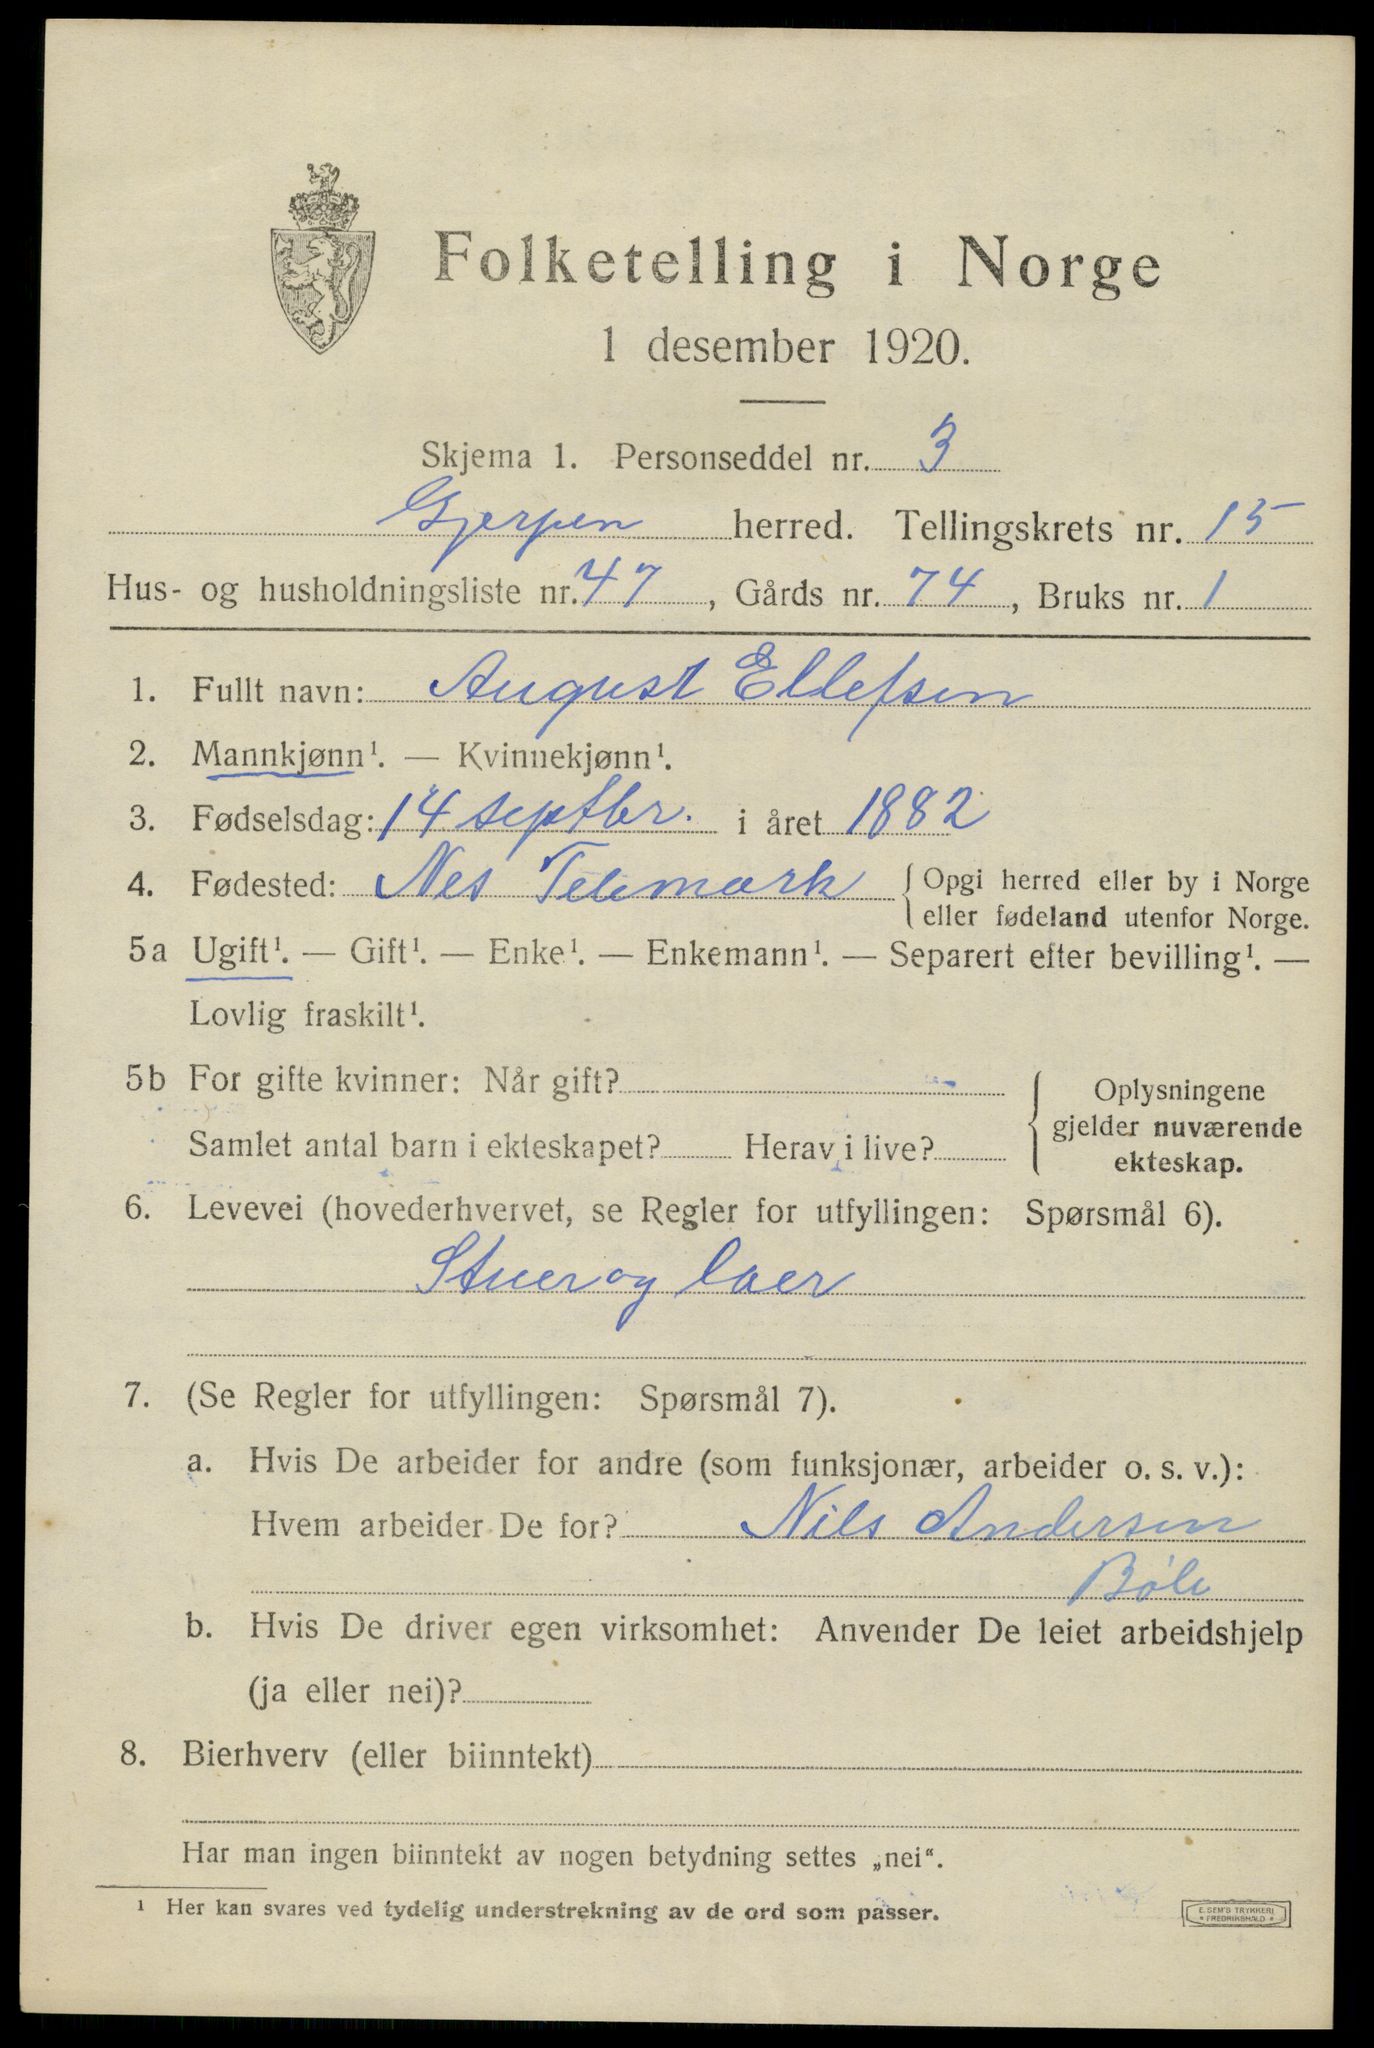 Folketelling i Norge
1 desember 1920.
Skjema 1. Personseddel nr. 3
Gjerpen herred. Tellingskrets nr. 15
Hus- og husholdningsliste nr. 47, Gårds nr. 74, Bruks nr. 1
1. Fullt navn: August Ellefsen
2. Mannkjønn¹. — Kvinnekjønn¹.
3. Fødselsdag: 14 septbr. i året 1882
4. Fødested: Nes Telemark { Opgi herred eller by i Norge
eller fødeland utenfor Norge.
5a Ugift¹. — Gift¹. — Enke¹. — Enkemann¹. — Separert efter bevilling¹. —
Lovlig fraskilt¹.
5b For gifte kvinner: Når gift?
Samlet antal barn i ekteskapet? Herav i live?
Oplysningene
gjelder nuværende
ekteskap.
6. Levevei (hovederhvervet, se Regler for utfyllingen: Spørsmål 6).
og
7. (Se Regler for utfyllingen: Spørsmål 7).
a. Hvis De arbeider for andre (som funksjonær, arbeider o. s. v.):
Hvem arbeider De for? Nils Andersen
Bøle
b. Hvis De driver egen virksomhet: Anvender De leiet arbeidshjelp
(ja eller nei)?
8. Bierhverv (eller biinntekt)
Har man ingen biinntekt av nogen betydning settes „nei“.
¹ Her kan svares ved tydelig understrekning av de ord som passer.
E. SEM'S TRYKKERI
* FREDRIKSHALD *